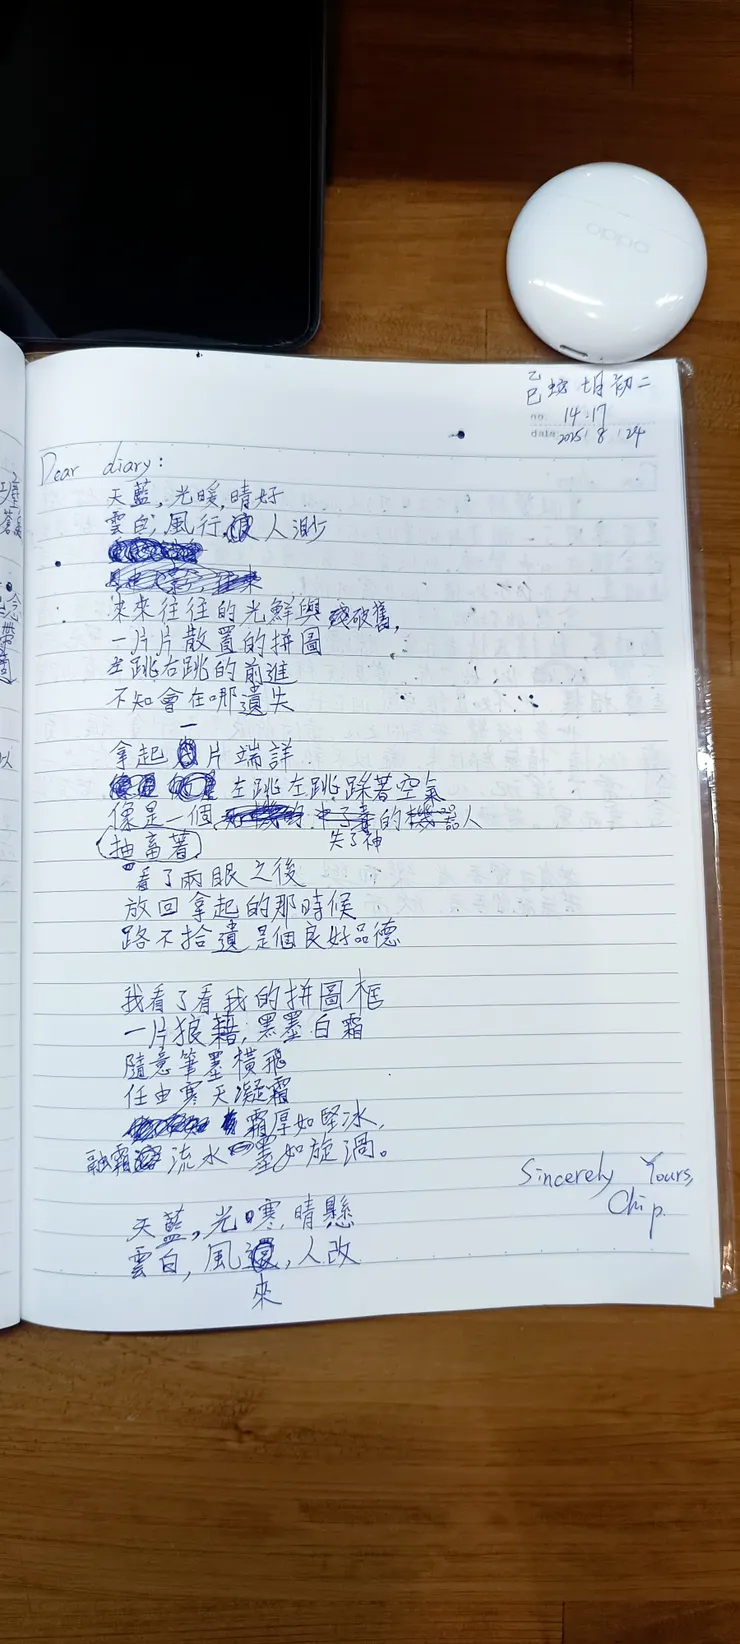 oppo
乙巳蛇 七月初二
no. 14:17
date: 2025 / 8 / 24
Dear diary:
天藍,光暖,晴好
雲白,風行,人渺
來來往往的光鮮與殘破舊,
一片片散置的拼圖
左跳右跳的前進
不知會在哪遺失
拿起一片端詳.
左跳左跳踩著空氣
像是一個失了神的機器人
抽畜著
看了兩眼之後
放回拿起的那時候
路不拾遺是個良好品德
我看了看我的拼圖框
一片狼藉,黑墨白霜
隨意筆墨橫飛
任由寒天凝霜
霜厚如堅冰,
融霜流水墨如旋渦。
Sincerely Yours,
Chip.
天藍,光寒,晴懸
雲白,風來,人改